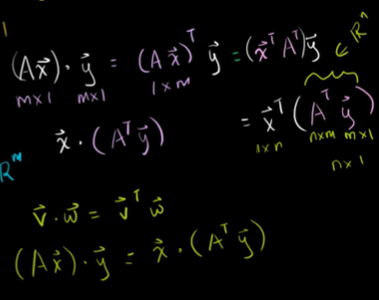 (Ax⃗) · y⃗ = (A x⃗)ᵀ y⃗ = (x⃗ᵀ Aᵀ) y⃗ ∈ ℝⁿ
m×1 m×1 1×m
x⃗ · (Aᵀ y⃗) = x⃗ᵀ (Aᵀ y⃗)
1×n n×m m×1
n×1
v⃗ · w⃗ = v⃗ᵀ w⃗
(A x⃗) · y⃗ = x⃗ · (Aᵀ y⃗)